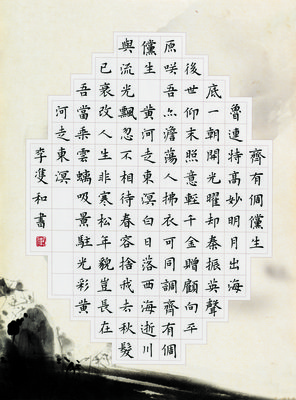 齊有倜儻生
魯連特高妙明月出海
底一朝開光曜却秦振英聲
後世仰末照意輕千金贈顧向平
原咲吾亦澹蕩人拂衣可同調齊有倜
儻生黄河走東溟白日落西海逝川
與流光飄忽不相待春容捨我去秋髮
已衰改人生非寒松年貌豈長在
吾當乘雲螭吸景駐光彩黄
河走東溟
李雙和書